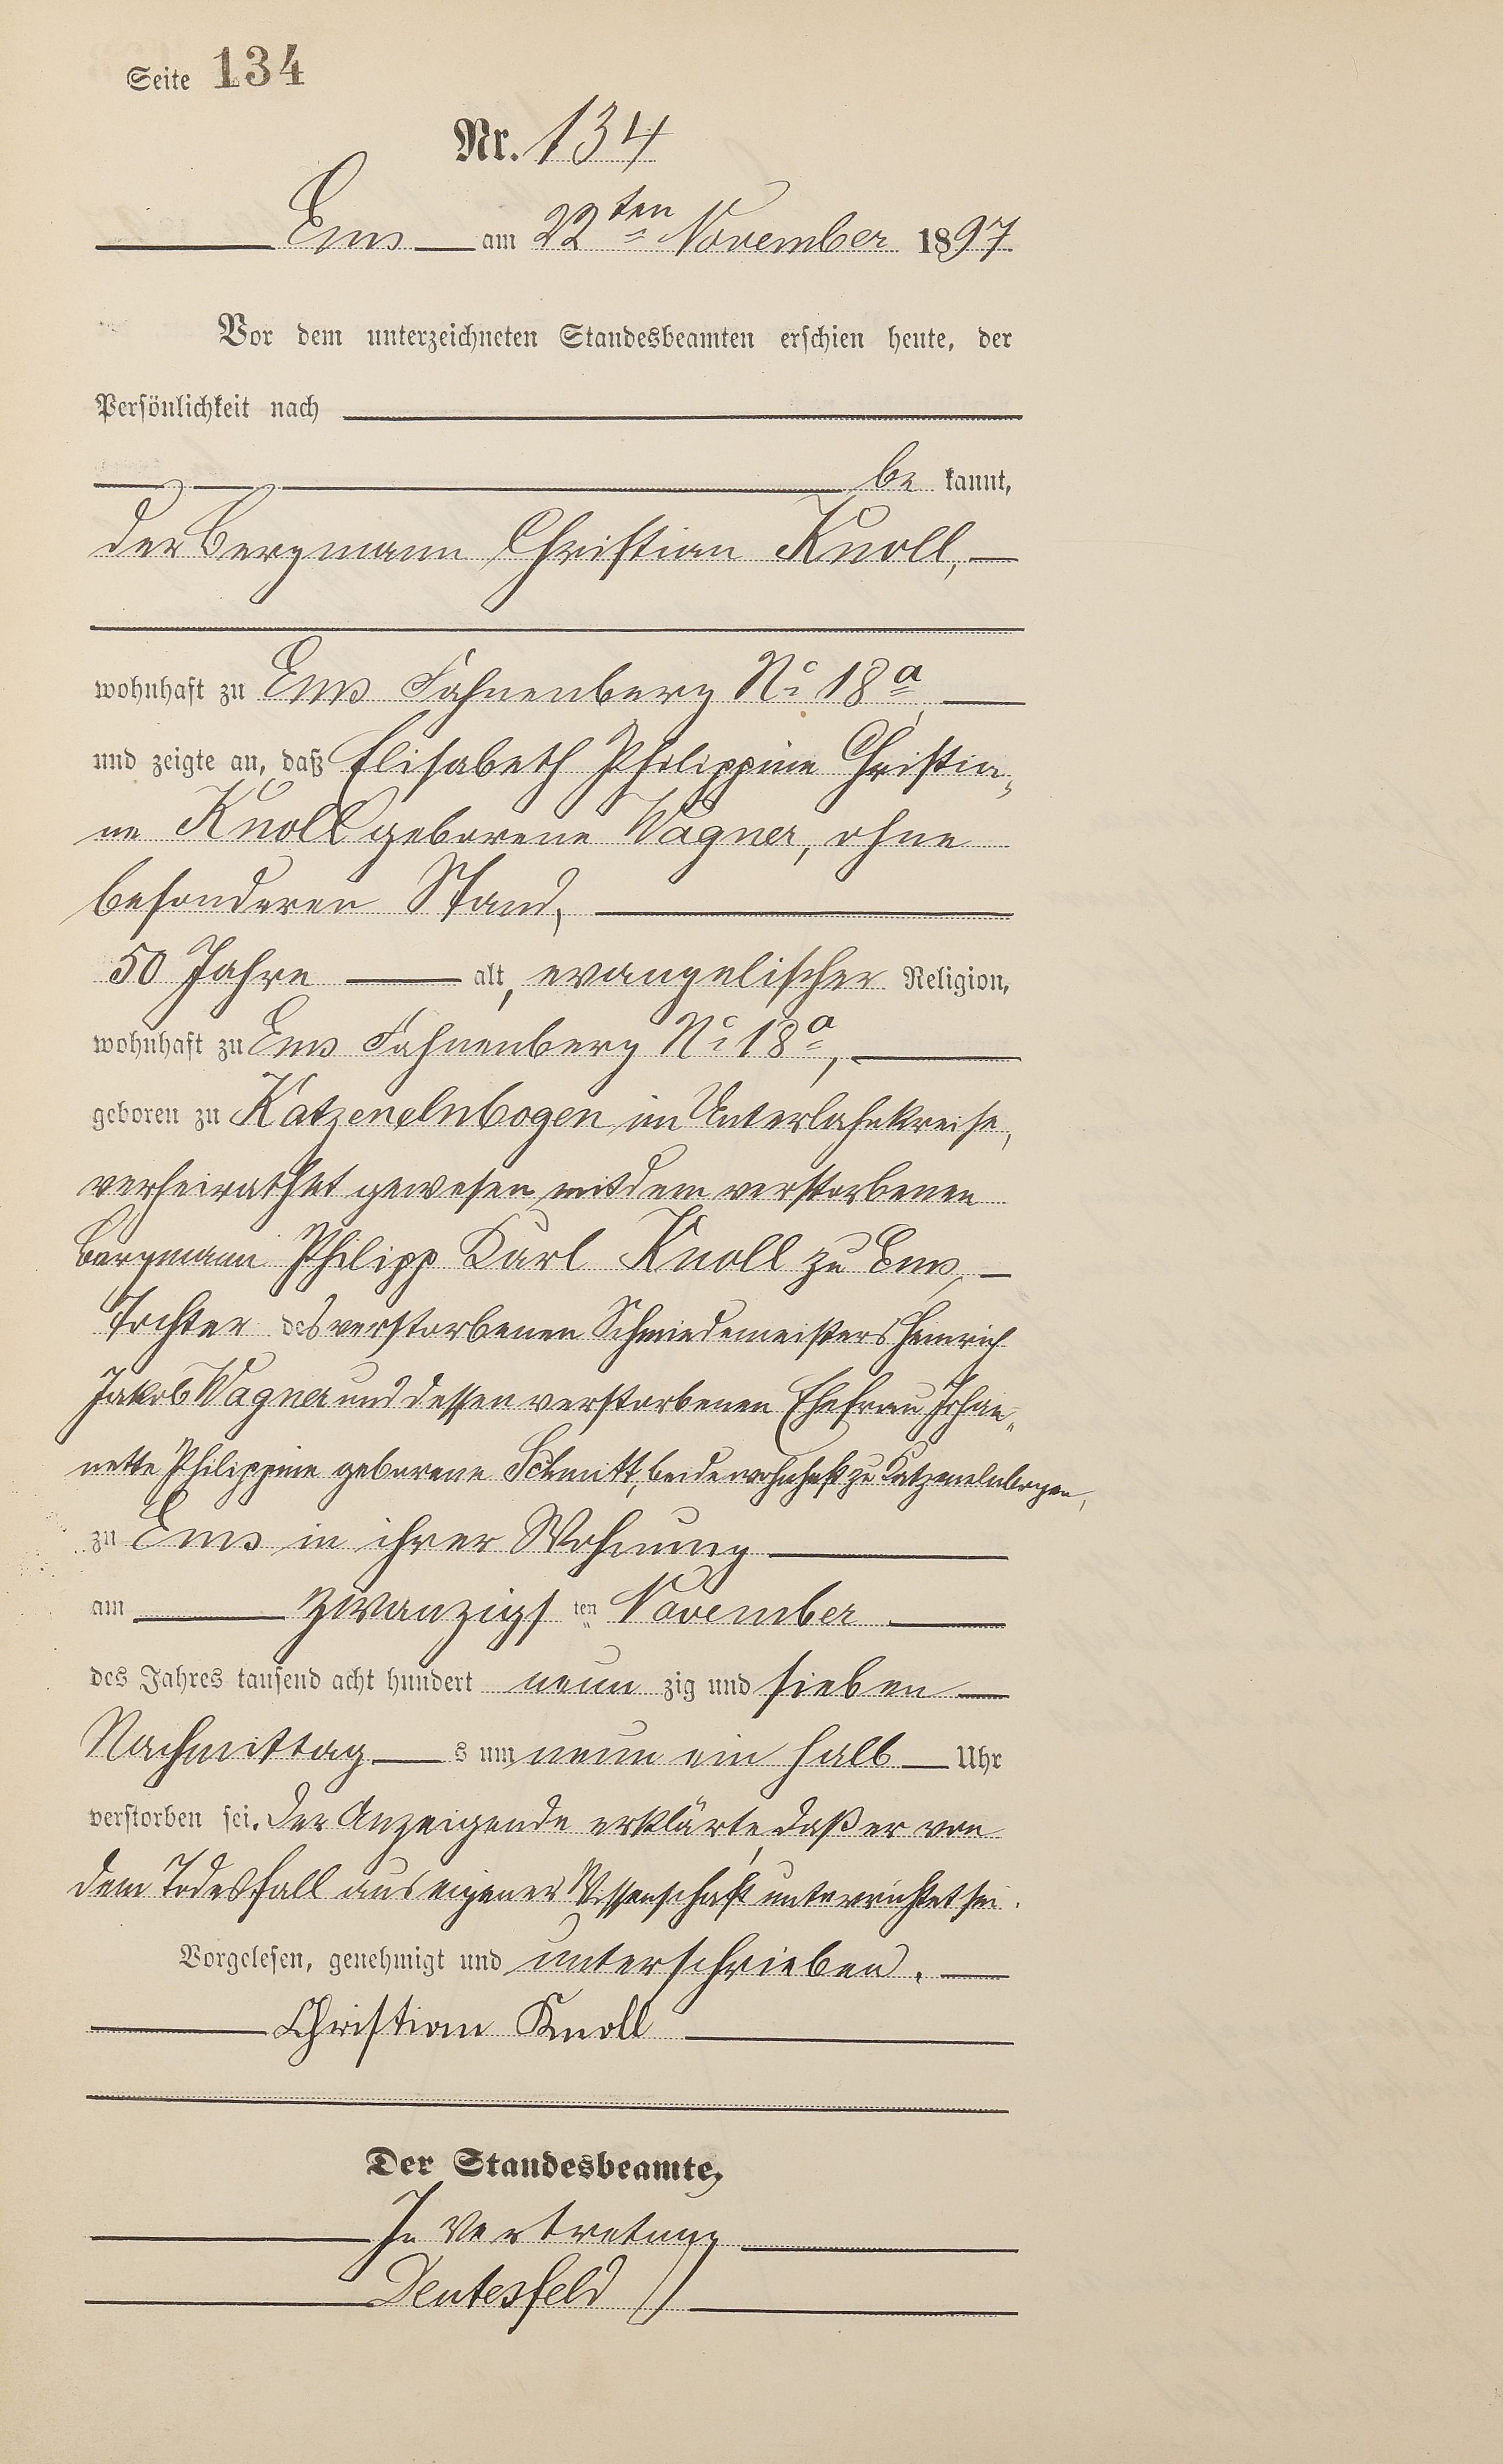 Seite 134
Nr. 134
Ems am 22ten November 1897
Vor dem unterzeichneten Standesbeamten erschien heute, der
Persönlichkeit nach
be kannt,
der Bergmann Christian Knoll,
wohnhaft zu Ems Fahnenberg No 18a,
und zeigte an, daß Elisabeth Philippine Christia„
ne Knoll geborene Wagner, ohne
besonderen Stand,
50 Jahre alt, evangelischer Religion,
wohnhaft zu Ems Fahnenberg No 18a,
geboren zu Katzenelnbogen im Unterlahnkreise,
verheirathet gewesen mit dem verstorbenen
Bergmann Philipp Karl Knoll zu Ems,
Tochter des verstorbenen Schmiedemeisters Heinrich
Jakob Wagner und dessen verstorbenen Ehefrau Johan„
nette Philippine geborene Schmitt, beide wohnhaft zu Katzenelnbogen,
zu Ems in ihrer Wohnung
am zwanzigs ten November
des Jahres tausend acht hundert neun zig und sieben
Nachmittag s um neun ein halb Uhr
verstorben sei. Der Anzeigende erklärte, daß er von
dem Todesfall aus eigener Wissenschaft unterrichtet sei.
Vorgelesen, genehmigt und unterschrieben.
Christian Knoll
Der Standesbeamte,
In Vertretung
Dentesfeld